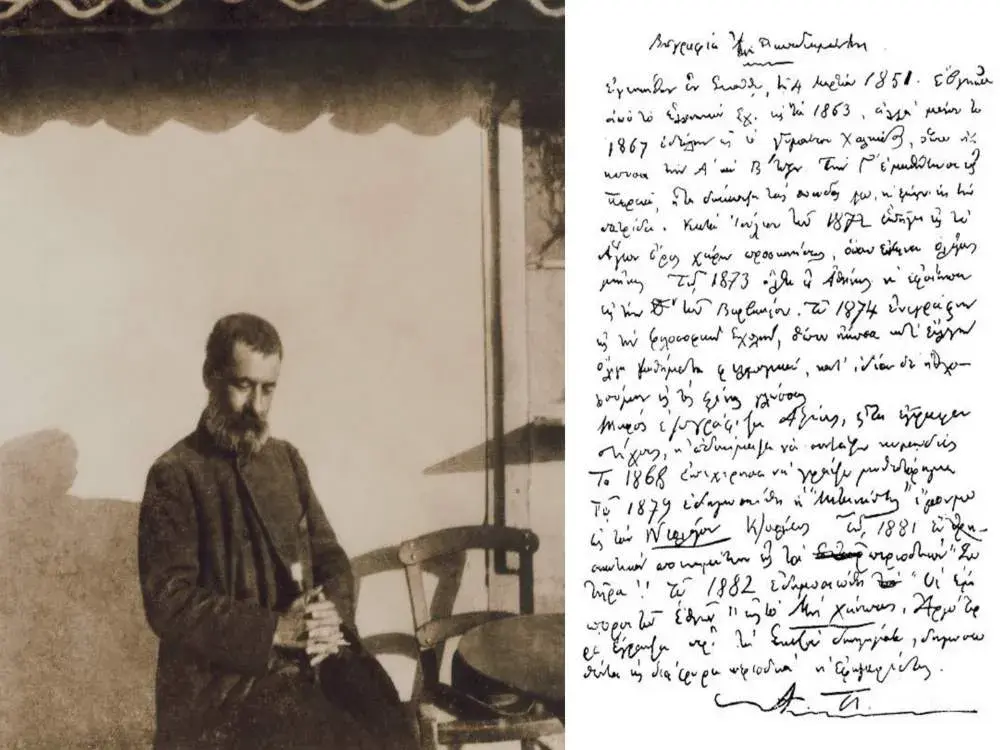 Βιογραφία Ἀλ. Παπαδιαμάντη
Ἐγεννήθην ἐν Σκιάθῳ, τῇ 4 Μαρτίου 1851. Ἐβγῆκα
ἀπὸ τὸ Ἑλληνικὸν Σχ. εἰς τὰ 1863, ἀλλὰ μόνον τὸ
1867 ἐστάλην εἰς τὸ Γυμνάσιον Χαλκίδος, ὅπου ἤ-
κουσα τὴν Α΄ καὶ Β΄ τάξιν. Τὴν Γ΄ ἐμαθήτευσα εἰς
Πειραιᾶ, εἶτα διέκοψα τὰς σπουδάς μου, κ' ἔμεινα εἰς τὴν
πατρίδα. Κατὰ Ἰούλιον τοῦ 1872 ὑπῆγα εἰς τὸ
Ἅγιον Ὄρος χάριν προσκυνήσεως, ὅπου ἔμεινα ὀλίγους
μῆνας. Τῷ 1873 ἦλθα εἰς Ἀθήνας κ' ἐφοίτησα
εἰς τὴν Δ΄ τοῦ Βαρβακείου. Τῷ 1874 ἐνεγράφην
εἰς τὴν Φιλοσοφικὴν Σχολήν, ὅπου ἤκουσα κατ' ἐκλογὴν
ὀλίγα μαθήματα φιλολογικά, κατ' ἰδίαν δὲ ἠσχο-
λούμην εἰς τὰς ξένας γλώσσας.
Μικρὸς ἐζωγράφιζα Ἁγίους, εἶτα ἔγραφα
στίχους, κ' ἐδοκίμαζα νὰ συντάξω κωμῳδίας.
Τὸ 1868 ἐπεχείρησα νὰ γράψω μυθιστόρημα.
Τῷ 1879 ἐδημοσιεύθη ἡ "Μετανάστις" ἔργον μου
εἰς τὸν Νεολόγον Κ/πόλεως. Τῷ 1881 ἓν θρη-
σκευτικὸν ποιημάτιον εἰς τὸ περιοδικὸν "Σω-
τῆρα". Τῷ 1882 ἐδημοσιεύθη "Οἱ ἔμ-
ποροι τῶν ἐθνῶν" εἰς τὸ Μὴ χάνεσαι. Ἀργότε-
ρα ἔγραψα περὶ τὰ ἑκατὸν διηγήματα, δημοσιευ-
θέντα εἰς διάφορα περιοδικὰ κ' ἐφημερίδας.
Α. Π.